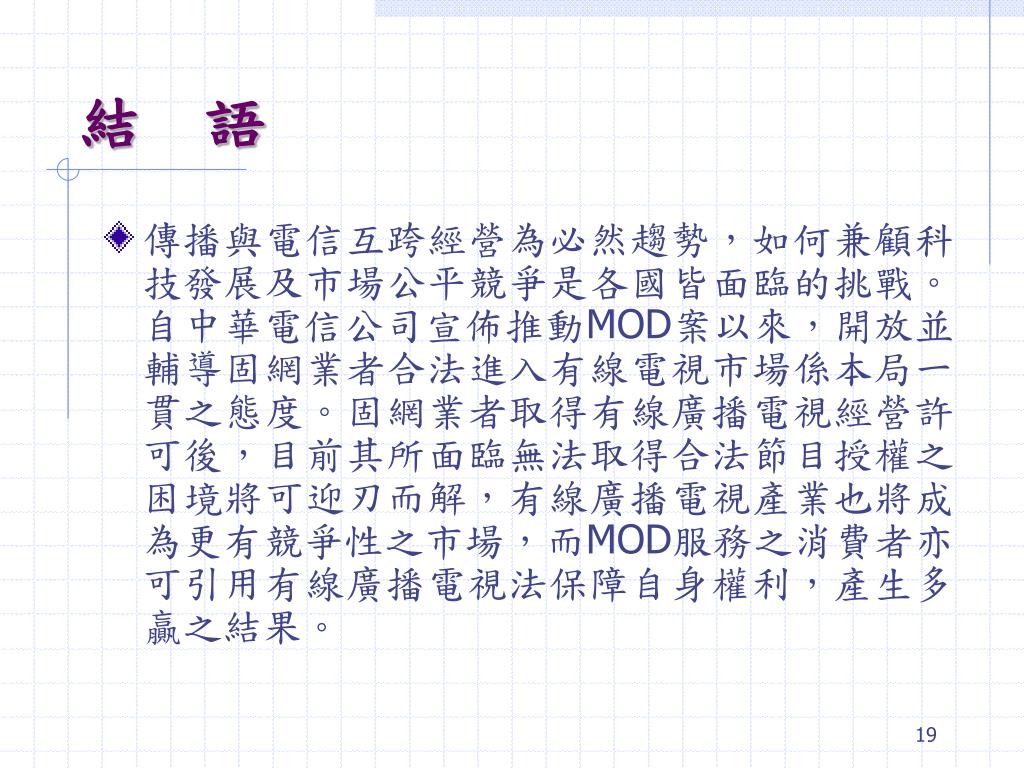 結　語
傳播與電信互跨經營為必然趨勢，如何兼顧科
技發展及市場公平競爭是各國皆面臨的挑戰。
自中華電信公司宣佈推動MOD案以來，開放並
輔導固網業者合法進入有線電視市場係本局一
貫之態度。固網業者取得有線廣播電視經營許
可後，目前其所面臨無法取得合法節目授權之
困境將可迎刃而解，有線廣播電視產業也將成
為更有競爭性之市場，而MOD服務之消費者亦
可引用有線廣播電視法保障自身權利，產生多
贏之結果。
19